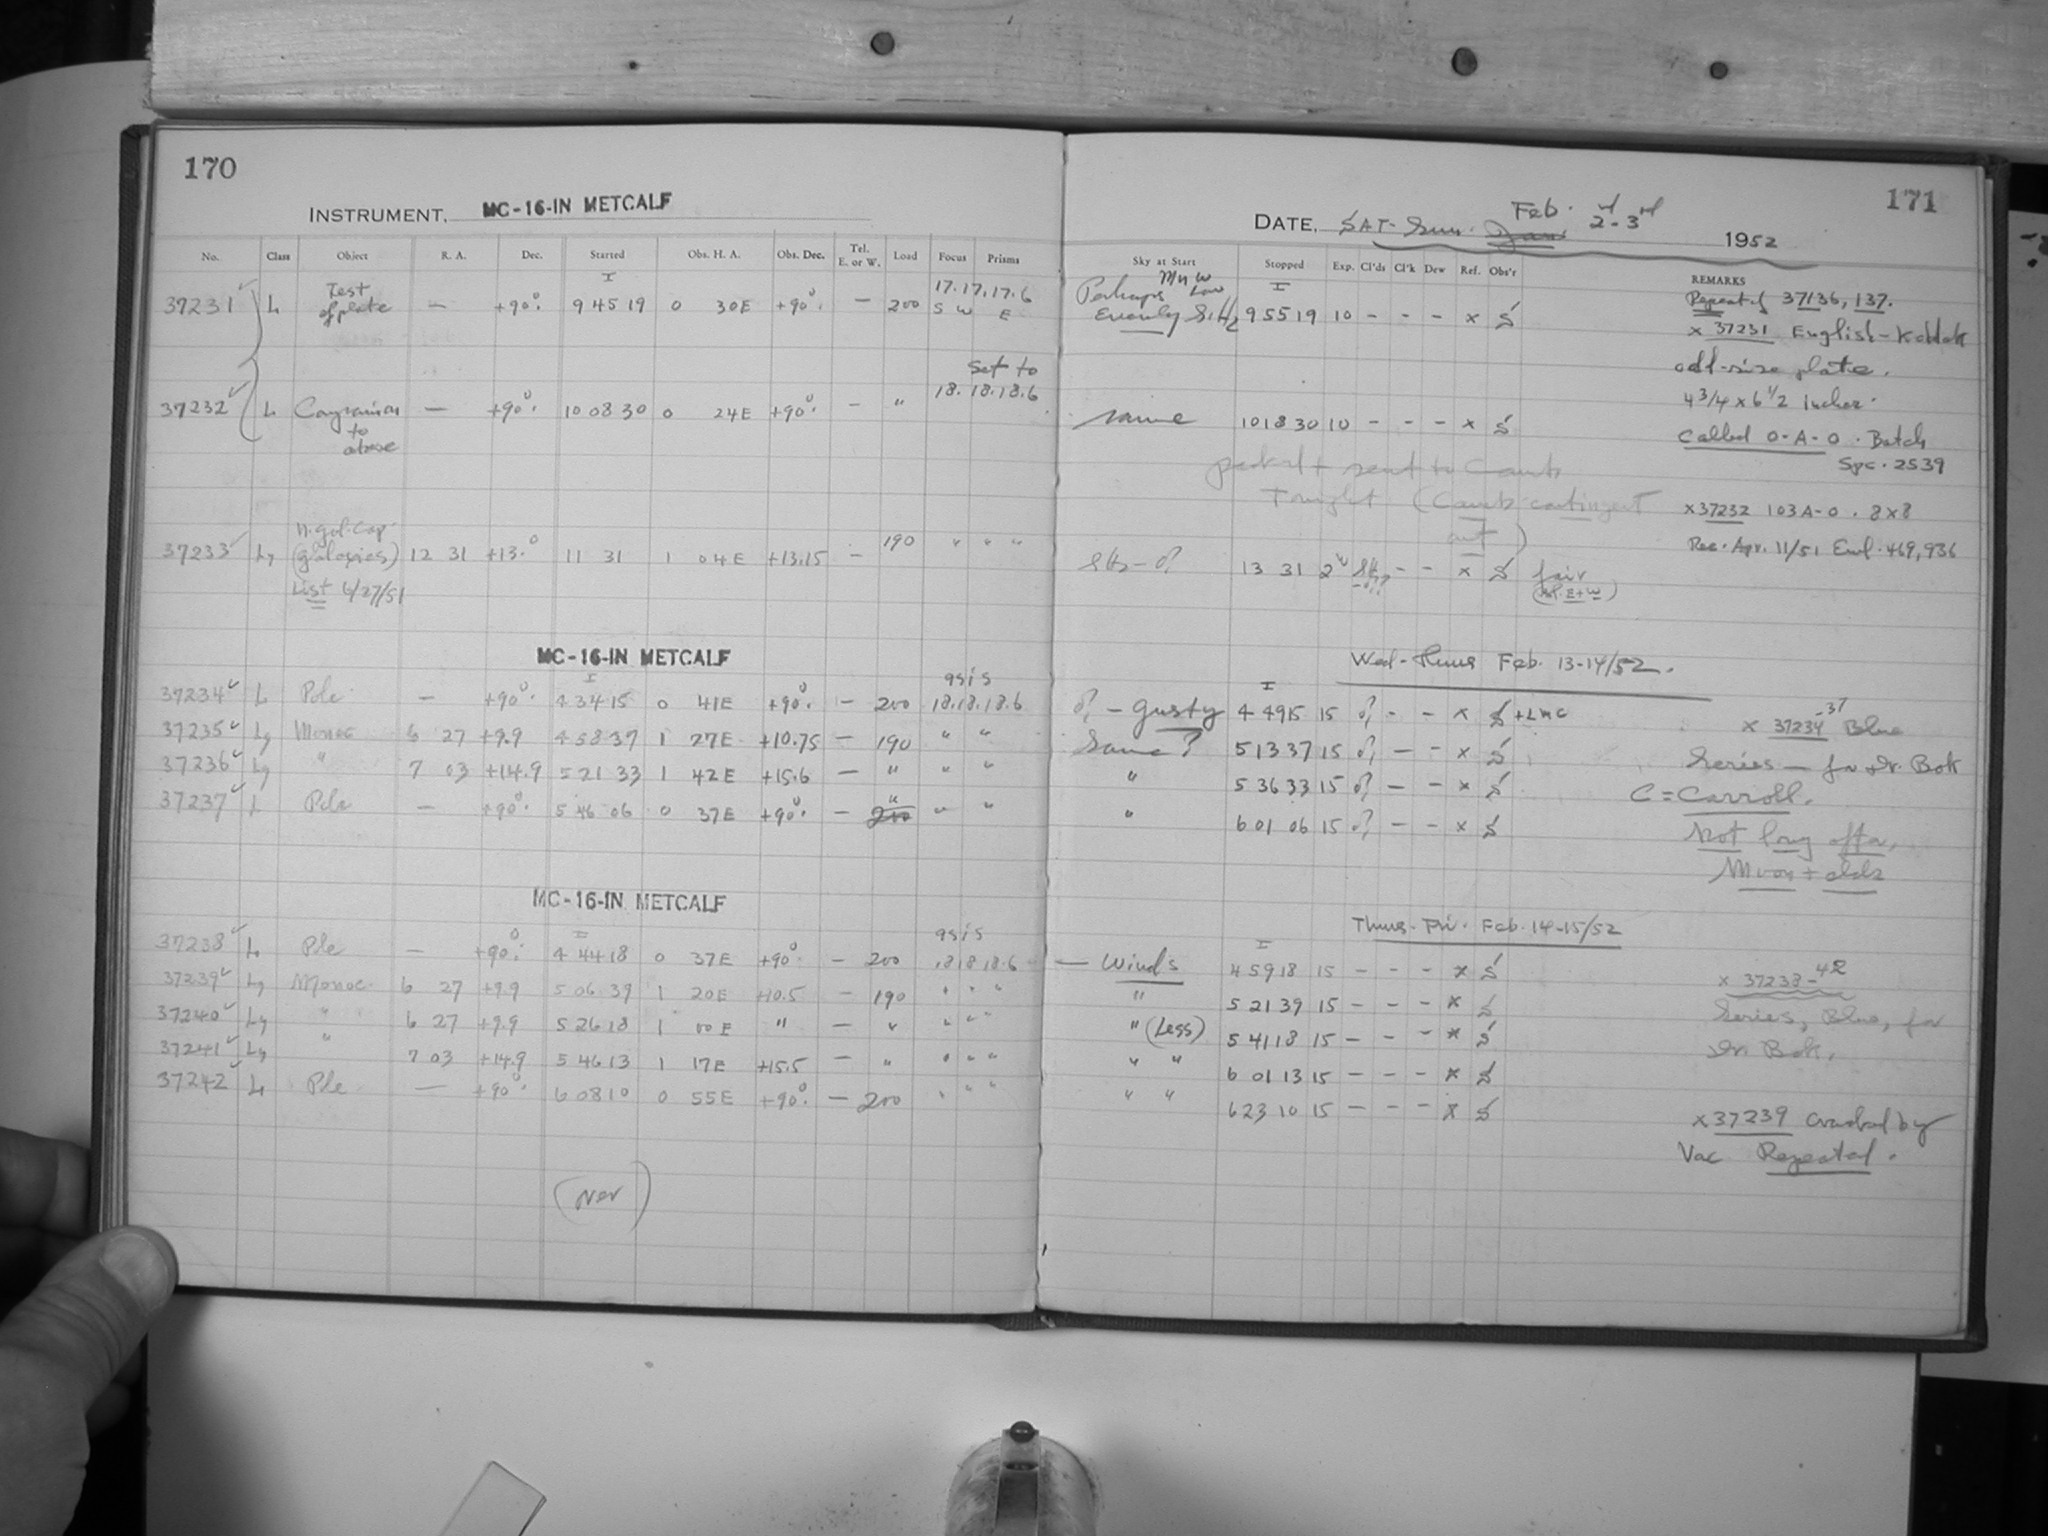 170
INSTRUMENT, MC-16-IN METCALF
No. Class Object R. A. Dec. Started Obs. H. A. Obs. Dec. Tel. E. or W. Load Focus Prisms
37231 L Test of plate — +90°. 9 45 19 0 30E +90°. — 200 17.17.17.6 S W E
Set to
37232 L Comparison to above — +90°. 10 08 30 0 24E +90°. — " 18.18.18.6
37233 Ly N. gal. cap (galaxies) 12 31 +13.° 11 31 1 04E +13.15 — 190 " " "
List 6/27/51
MC-16-IN METCALF
as is
37234 L Pole — +90°. 4 34 15 0 41E +90°. — 200 18.18.18.6
37235 Ly Monoc 6 27 +9.9 4 58 37 1 27E +10.75 — 190 " "
37236 Ly " 7 03 +14.9 5 21 33 1 42E +15.6 — " " "
37237 L Pole — +90°. 5 46 06 0 37E +90°. — " 200 " "
MC-16-IN METCALF
as is
37238 L Pole — +90°. 4 44 18 0 37E +90°. — 200 18 18 18.6
37239 Ly Monoc. 6 27 +9.9 5 06 39 1 20E +10.5 — 190 " " "
37240 Ly " 6 27 +9.9 5 26 18 1 00E " — " " " "
37241 Ly " 7 03 +14.9 5 46 13 1 17E +15.5 — " " " "
37242 L Pole — +90°. 6 08 10 0 55E +90°. — 200 " " "
171
DATE, SAT-Sun. Jan Feb. 2nd-3rd 1952
Sky at Start Stopped Exp. Cl'ds Cl'k Dew Ref. Obs'r REMARKS
Perhaps
9 55 19 10 - - - x S
Repeat of 37136, 137.
x 37231 English-Kodak
odd-size plate.
4 3/4 x 6 1/2 Inches.
same 10 18 30 10 - - - x S
Called O-A-O. Batch
Spc. 2539
packed + sent to Camb
Tonight (Camb contingent
x37232 103A-O. 8x8
Rec. Apr. 11/51 Eml. 469,936
13 31 - - x S fair
Wed-Thurs Feb. 13-14/52.
Gusty 4 49 15 15 - - x S
x 37234-37 Blue
Same? 5 13 37 15 — - x S
Series — for Dr. Bok
" 5 36 33 15 — - x S
C=Carroll.
" 6 01 06 15 — - x S
Not long after,
Moon + clds
Thurs-Fri. Feb. 14-15/52
— Winds 4 59 18 15 - - - x S
x 37238-42
" 5 21 39 15 - - - x S
Series, Blue, for
" (Less) 5 41 18 15 — - - x S
Dr. Bok.
" " 6 01 13 15 — - - x S
" " 6 23 10 15 — - - x S
x 37239 Cracked by
Vac Repeated.